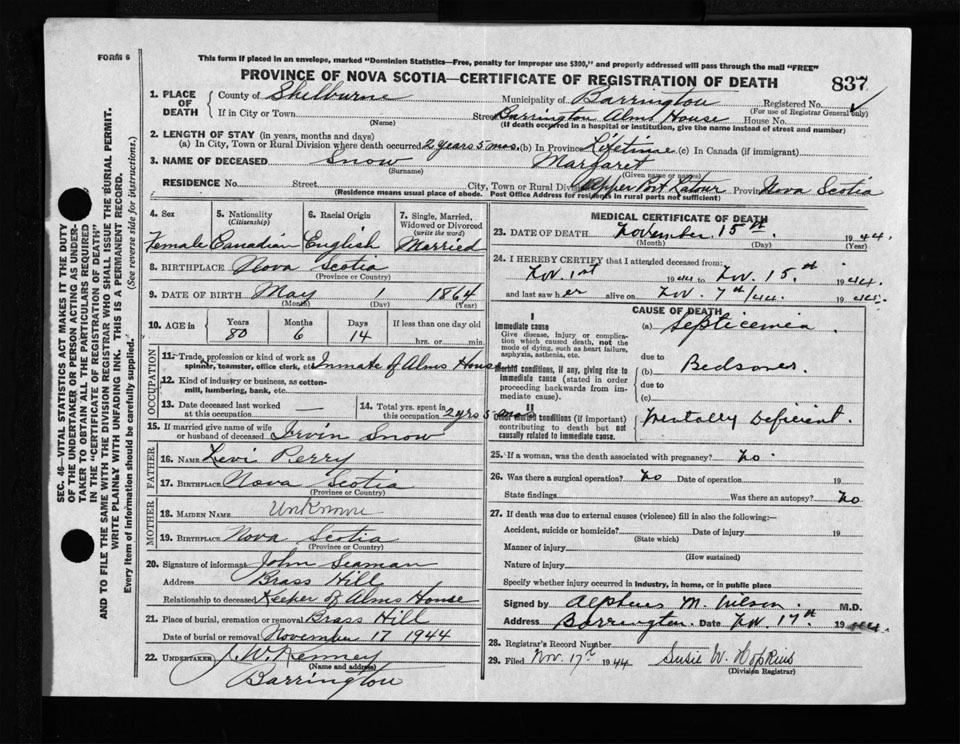 FORM 6
This form if placed in an envelope, marked "Dominion Statistics—Free, penalty for improper use $300," and properly addressed will pass through the mail "FREE"
PROVINCE OF NOVA SCOTIA—CERTIFICATE OF REGISTRATION OF DEATH 837
SEC. 46—VITAL STATISTICS ACT MAKES IT THE DUTY
OF THE UNDERTAKER OR PERSON ACTING AS UNDER-
TAKER TO OBTAIN ALL THE PARTICULARS REQUIRED
IN THE "CERTIFICATE OF REGISTRATION OF DEATH"
AND TO FILE THE SAME WITH THE DIVISION REGISTRAR WHO SHALL ISSUE THE BURIAL PERMIT.
WRITE PLAINLY WITH UNFADING INK. THIS IS A PERMANENT RECORD.
Every item of information should be carefully supplied. (See reverse side for instructions.)
1. PLACE OF DEATH County of Shelburne Municipality of Barrington Registered No. ✓
(For use of Registrar General only)
If in City or Town Street Barrington Alms House House No.
(Name) (If death occurred in a hospital or institution, give the name instead of street and number)
2. LENGTH OF STAY (in years, months and days)
(a) In City, Town or Rural Division where death occurred 2 years 5 mos. (b) In Province Lifetime (c) In Canada (if immigrant)
3. NAME OF DECEASED Snow Margaret
(Surname) (Given name or names)
RESIDENCE No. Street City, Town or Rural Div. Upper Port Latour Province Nova Scotia
(Residence means usual place of abode. Post Office Address for residents in rural parts not sufficient)
4. Sex 5. Nationality (Citizenship) 6. Racial Origin 7. Single, Married, Widowed or Divorced (write the word)
Female Canadian English Married
8. BIRTHPLACE Nova Scotia
(Province or Country)
9. DATE OF BIRTH May 1 1864
(Month) (Day) (Year)
10. AGE in Years Months Days If less than one day old
80 6 14 hrs. or min.
OCCUPATION
11. Trade, profession or kind of work as spinner, teamster, office clerk, etc. Inmate of Alms House
12. Kind of industry or business, as cotton-mill, lumbering, bank, etc.
13. Date deceased last worked at this occupation — 14. Total yrs. spent in this occupation 2 yrs 5 mos
15. If married give name of wife or husband of deceased Irvin Snow
FATHER
16. Name Levi Perry
17. Birthplace Nova Scotia
(Province or Country)
MOTHER
18. Maiden Name Unknown
19. Birthplace Nova Scotia
(Province or Country)
20. Signature of informant John Seaman
Address Brass Hill
Relationship to deceased Keeper of Alms House
21. Place of burial, cremation or removal Brass Hill
Date of burial or removal November 17 1944
22. UNDERTAKER J. W. Kenney
(Name and address)
Barrington
MEDICAL CERTIFICATE OF DEATH
23. DATE OF DEATH November 15th. 1944.
(Month) (Day) (Year)
24. I HEREBY CERTIFY that I attended deceased from:
Nov. 1st 1944 to Nov. 15th 1944.
and last saw her alive on Nov. 7th/44. 1944.
CAUSE OF DEATH
I
Immediate cause
Give disease, injury or complication which caused death, not the mode of dying, such as heart failure, asphyxia, asthenia, etc.
(a) Septicemia.
due to
Morbid conditions, if any, giving rise to immediate cause (stated in order proceeding backwards from immediate cause).
(b) Bedsores.
due to
(c)
II
Other morbid conditions (if important) contributing to death but not causally related to immediate cause.
Mentally Deficient.
25. If a woman, was the death associated with pregnancy? No.
26. Was there a surgical operation? No Date of operation 19
State findings Was there an autopsy? No
27. If death was due to external causes (violence) fill in also the following:—
Accident, suicide or homicide? Date of injury 19
(State which)
Manner of injury
(How sustained)
Nature of injury
Specify whether injury occurred in industry, in home, or in public place
Signed by Alpheus M. Wilson M.D.
Address Barrington. Date Nov. 17th 1944.
28. Registrar's Record Number
29. Filed Nov. 17th 1944 Susie W. Hopkins
(Division Registrar)